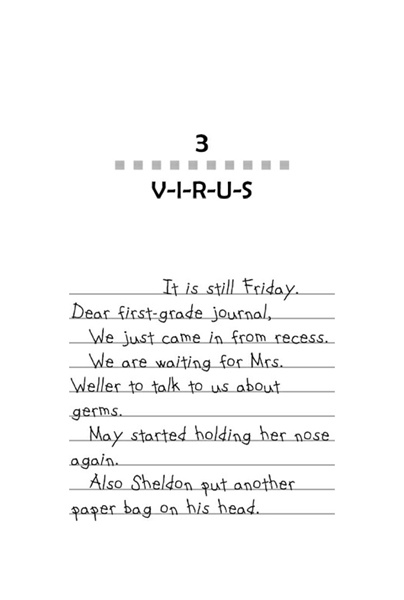 3
V-I-R-U-S
It is still Friday.
Dear first-grade journal,
We just came in from recess.
We are waiting for Mrs.
Weller to talk to us about
germs.
May started holding her nose
again.
Also Sheldon put another
paper bag on his head.